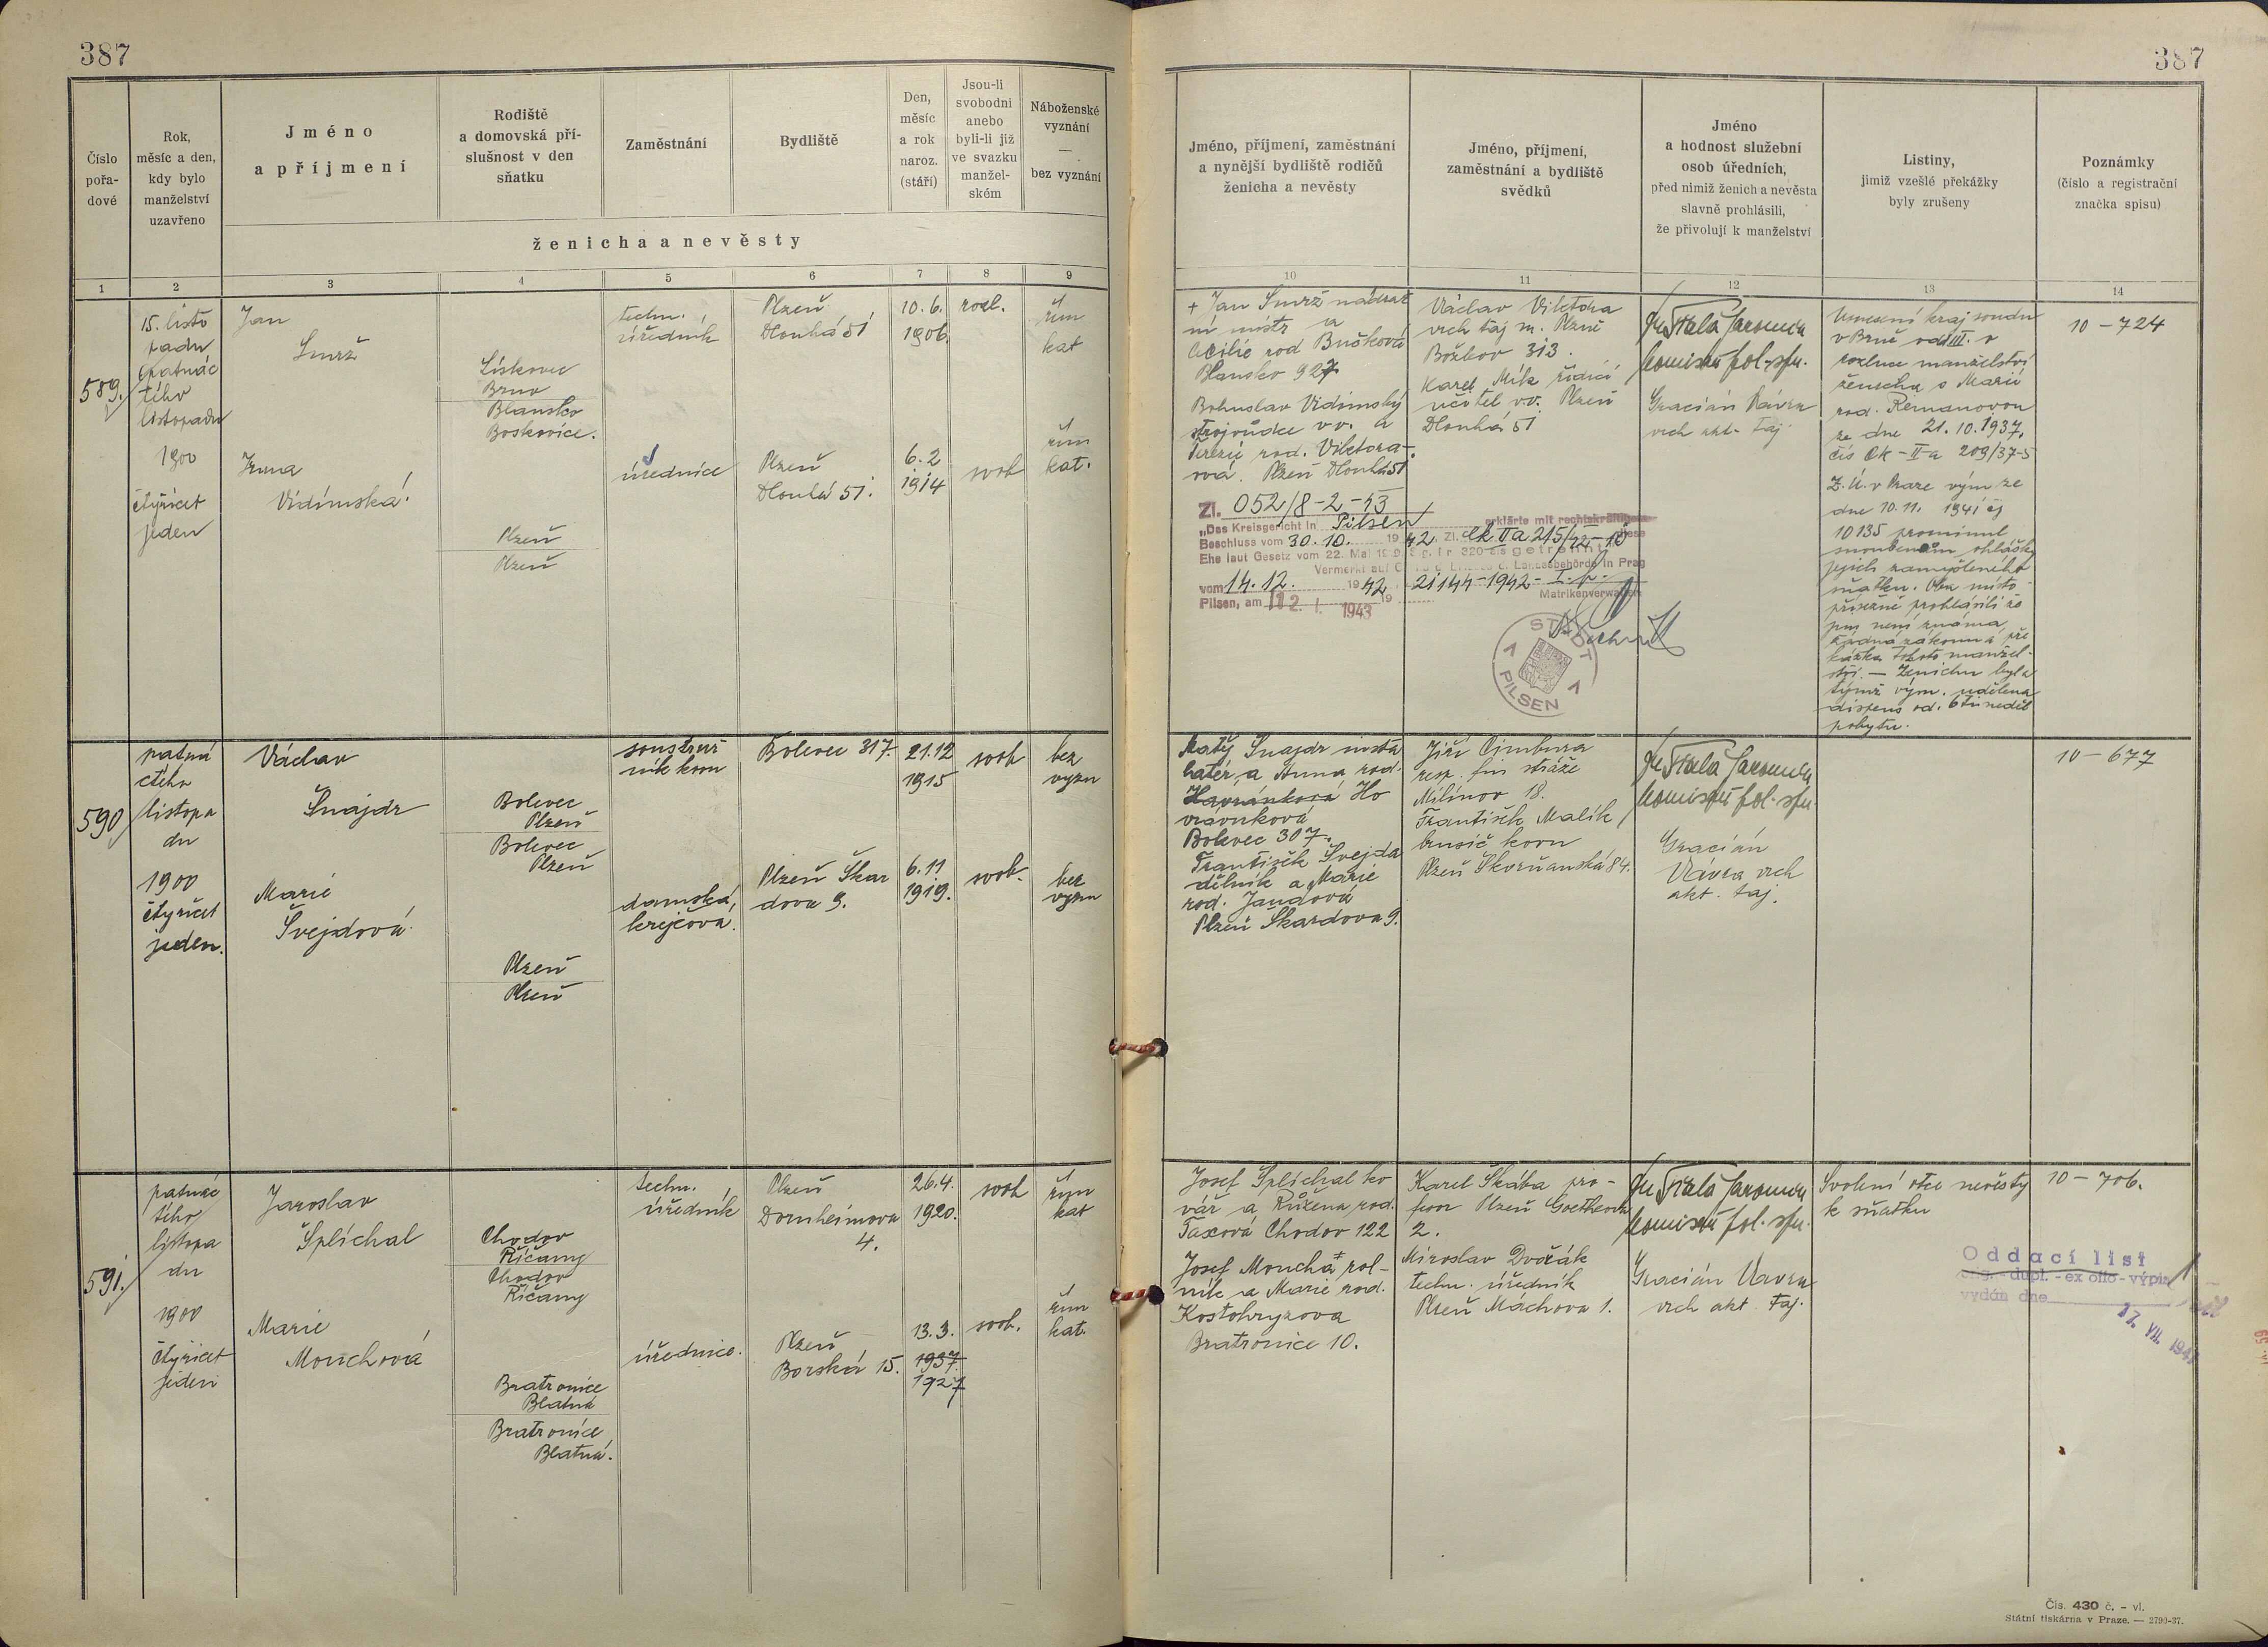 387
387
Číslo
pořa-
dové
Rok,
měsíc a den,
kdy bylo
manželství
uzavřeno
Jméno
a příjmení
Rodiště
a domovská pří-
slušnost v den
sňatku
Zaměstnání
Bydliště
Den,
měsíc
a rok
naroz.
(stáří)
Jsou-li
svobodni
anebo
byli-li již
ve svazku
manžel-
ském
Náboženské
vyznání
—
bez vyznání
ženicha a nevěsty
Jméno, příjmení, zaměstnání
a nynější bydliště rodičů
ženicha a nevěsty
Jméno, příjmení,
zaměstnání a bydliště
svědků
Jméno
a hodnost služební
osob úředních,
před nimiž ženich a nevěsta
slavně prohlásili,
že přivolují k manželství
Listiny,
jimiž vzešlé překážky
byly zrušeny
Poznámky
(číslo a registrační
značka spisu)
1 2 3 4 5 6 7 8 9
10 11 12 13 14
589.
15. listo
padu
(patnác
tého
listopadu
1900
čtyřicet
jeden
Jan
Smrž
Lískovec
Brno
Blansko
Boskovice.
techn.
úředník
Plzeň
Dlouhá 51
10.6.
1906.
rozl.
řím
kat
Irma
Vidimská.
Plzeň
Plzeň
úřednice
Plzeň
Dlouhá 51.
6.2
1914
svob
řím
kat.
+ Jan Smrž nádraž
ní mistr a
Cecilie rod Bučková
Blansko 927.
Bohuslav Vidimský
strojvůdce v.v. a
Terezie rod. Viktora-
ová. Plzeň Dlouhá 51
Václav Viktora
vrch taj m. Plzně
Božkov 313.
Karel Mík řídící
učitel vv. Plzeň
Dlouhá 51
komisař pol. spr.
Gracián Vávra
vrch akt. taj.
Usnesení kraj soudu
v Brně odd III. o
rozluce manželství
ženicha s Marií
rod. Remanovou
ze dne 21.10.1937.
čís Ck-II-a 209/37-5
Z.Ú. v Praze vým ze
dne 10.11. 1941 čj
10135 prominul
snoubencům ohlášky
jejich zamýšleného
sňatku. Oba místo
přísežně prohlásili že
jim není známa
žádná zákonná pře
kážka tohoto manžel-
ství. — Ženichu byla
týmž vým. udělena
dispens od. 6ti neděl
pobytu.
10 - 724
Zl. 052/8-2-43
„Das Kreisgericht in Pilsen erklärte mit rechtskräftigem
Beschluss vom 30.10. 1942, Zl. Ck IIa 215/42-10 diese
Ehe laut Gesetz vom 22. Mai 1919, S. Nr. 320 als getrennt.
vom 14.12. 1942 21144-1942-I.
Pilsen, am 12. I. 1943 Matrikenverwalter
STADT PILSEN
590
patná
ctého
listopa
du
1900
čtyřicet
jeden.
Václav
Šnajdr
Bolevec
Plzeň
Bolevec
Plzeň
soustruž
ník kovu
Bolevec 317.
21.12
1915
svob
bez
vyzn
Marie
Švejdová
Plzeň
Plzeň
damská
krejčová.
Plzeň Škar
dova 9.
6.11
1919.
svob.
bez
vyzn
Matěj Šnajdr insta
latér, a Anna rod.
Havránková Ho
vravnková
Bolevec 307.
František Švejda
dělník a Marie
rod. Jandová
Plzeň Škardova 9.
Jiří Cimbura
resp. fin stráže
Milínov 18.
František Malík,
brusič kovu
Plzeň Skvrňanská 84.
komisař pol. spr.
Gracián
Vávra vrch
akt. taj.
10 - 677
591.
patnác
tého
listopa
du
1900
čtyřicet
jeden
Jaroslav
Šplíchal
Chodov
Říčany
Chodov
Říčany
techn.
úředník
Plzeň
Dornheimova
4.
26.4.
1920.
svob
řím
kat
Marie
Mouchová
Bratronice
Blatná
Bratronice
Blatná.
úřednice.
Plzeň
Borská 15.
13.3.
1937.
1927
svob.
řím
kat.
Josef Šplíchal ko
vář a Růžena rod.
Taxová Chodov 122
Josef Moucha rol-
ník a Marie rod.
Kostohryzova
Bratronice 10.
Karel Škába pro-
fesor Plzeň Goetheova
2.
Miroslav Dvořák
techn. úředník
Plzeň Máchova 1.
komisař pol. spr.
Gracián Vávra
vrch akt. taj.
Svolení otce nevěsty
k sňatku
10 - 706.
Oddací list
orig. - dupl. - ex offo - výpis
vydán dne
Čís. 430 č. - vl.
Státní tiskárna v Praze. — 2790-37.